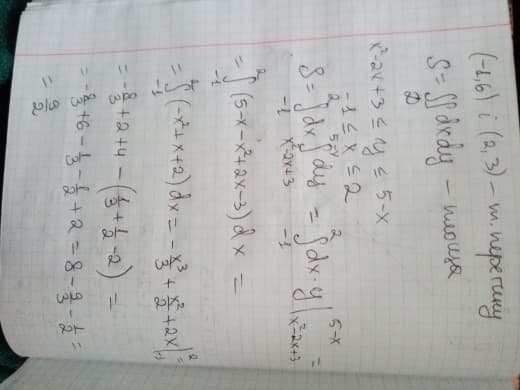 (-1,6) і (2,3) – т. перетину
S = ∬ dxdy – площа
D
x²-2x+3 ≤ y ≤ 5-x
-1 ≤ x ≤ 2
S = ∫₋₁² dx ∫_{x²-2x+3}^{5-x} dy = ∫₋₁² dx · y |_{x²-2x+3}^{5-x} =
= ∫₋₁² (5-x-x²+2x-3) dx =
= ∫₋₁² (-x²+x+2) dx = - x³/3 + x²/2 + 2x |₋₁² =
= -8/3 + 2 + 4 - (1/3 + 1/2 - 2) =
= -8/3 + 6 - 1/3 - 1/2 + 2 = 8 - 9/3 - 1/2 =
= 9/2